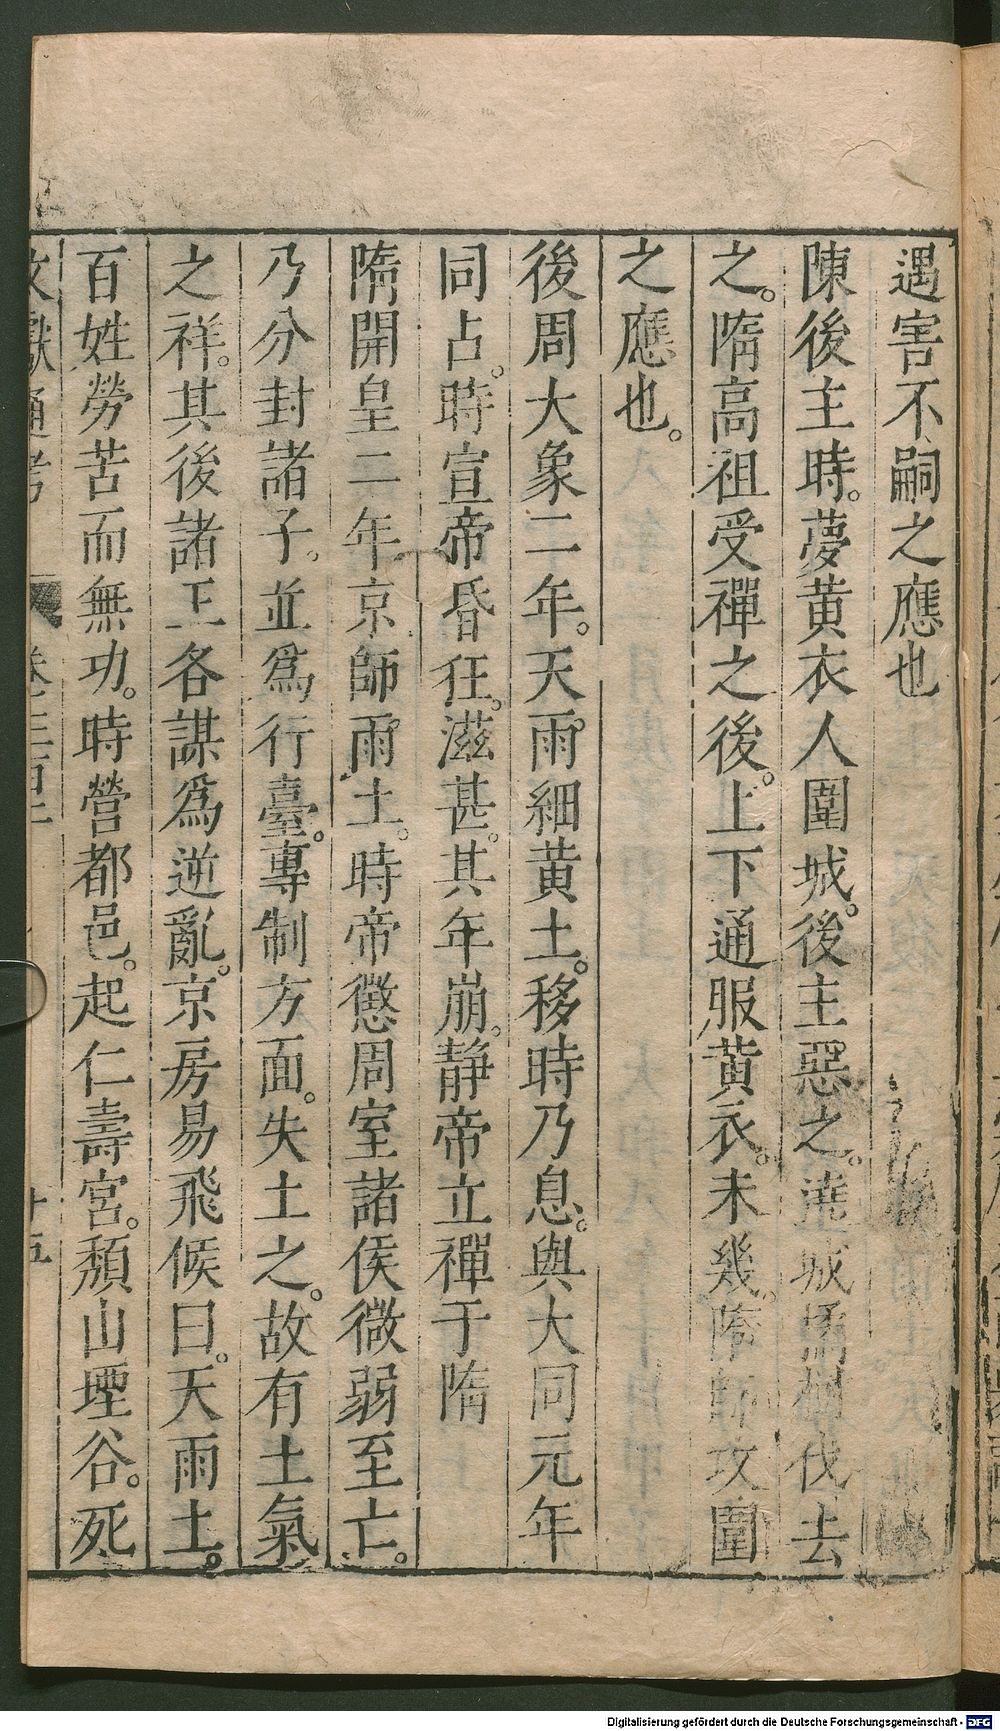 遇害不嗣之應也
陳後主時。夢黃衣人圍城。後主惡之。遶城橘樹伐去
之。隋高祖受禪之後。上下通服黃衣。未幾。隋師攻圍
之應也。
後周大象二年。天雨細黃土。移時乃息。與大同元年
同占。時宣帝昏狂。滋甚。其年崩。靜帝立禪于隋
隋開皇二年京師雨土。時帝懲周室諸侯微弱至亡。
乃分封諸子。並爲行臺。專制方面。失土之。故有土氣
之祥。其後諸王各謀爲逆亂。京房易飛候曰。天雨土。
百姓勞苦而無功。時營都邑。起仁壽宮。頹山堙谷。死
文獻通考 卷三百 十五
Digitalisierung gefördert durch die Deutsche Forschungsgemeinschaft - DFG